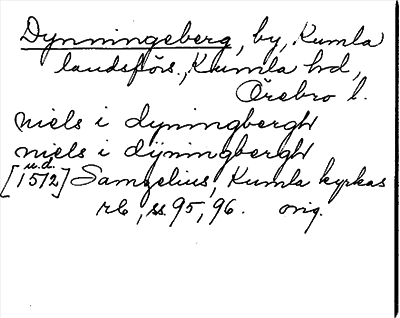 Dynningeberg, by, Kumla
landsförs., Kumla hd,
Örebro l.
niels i dyningbergh
niels i dÿningbergh
u.d.
[1512] Samzelius, Kumla kyrkas
rb, ss. 95, 96. orig.